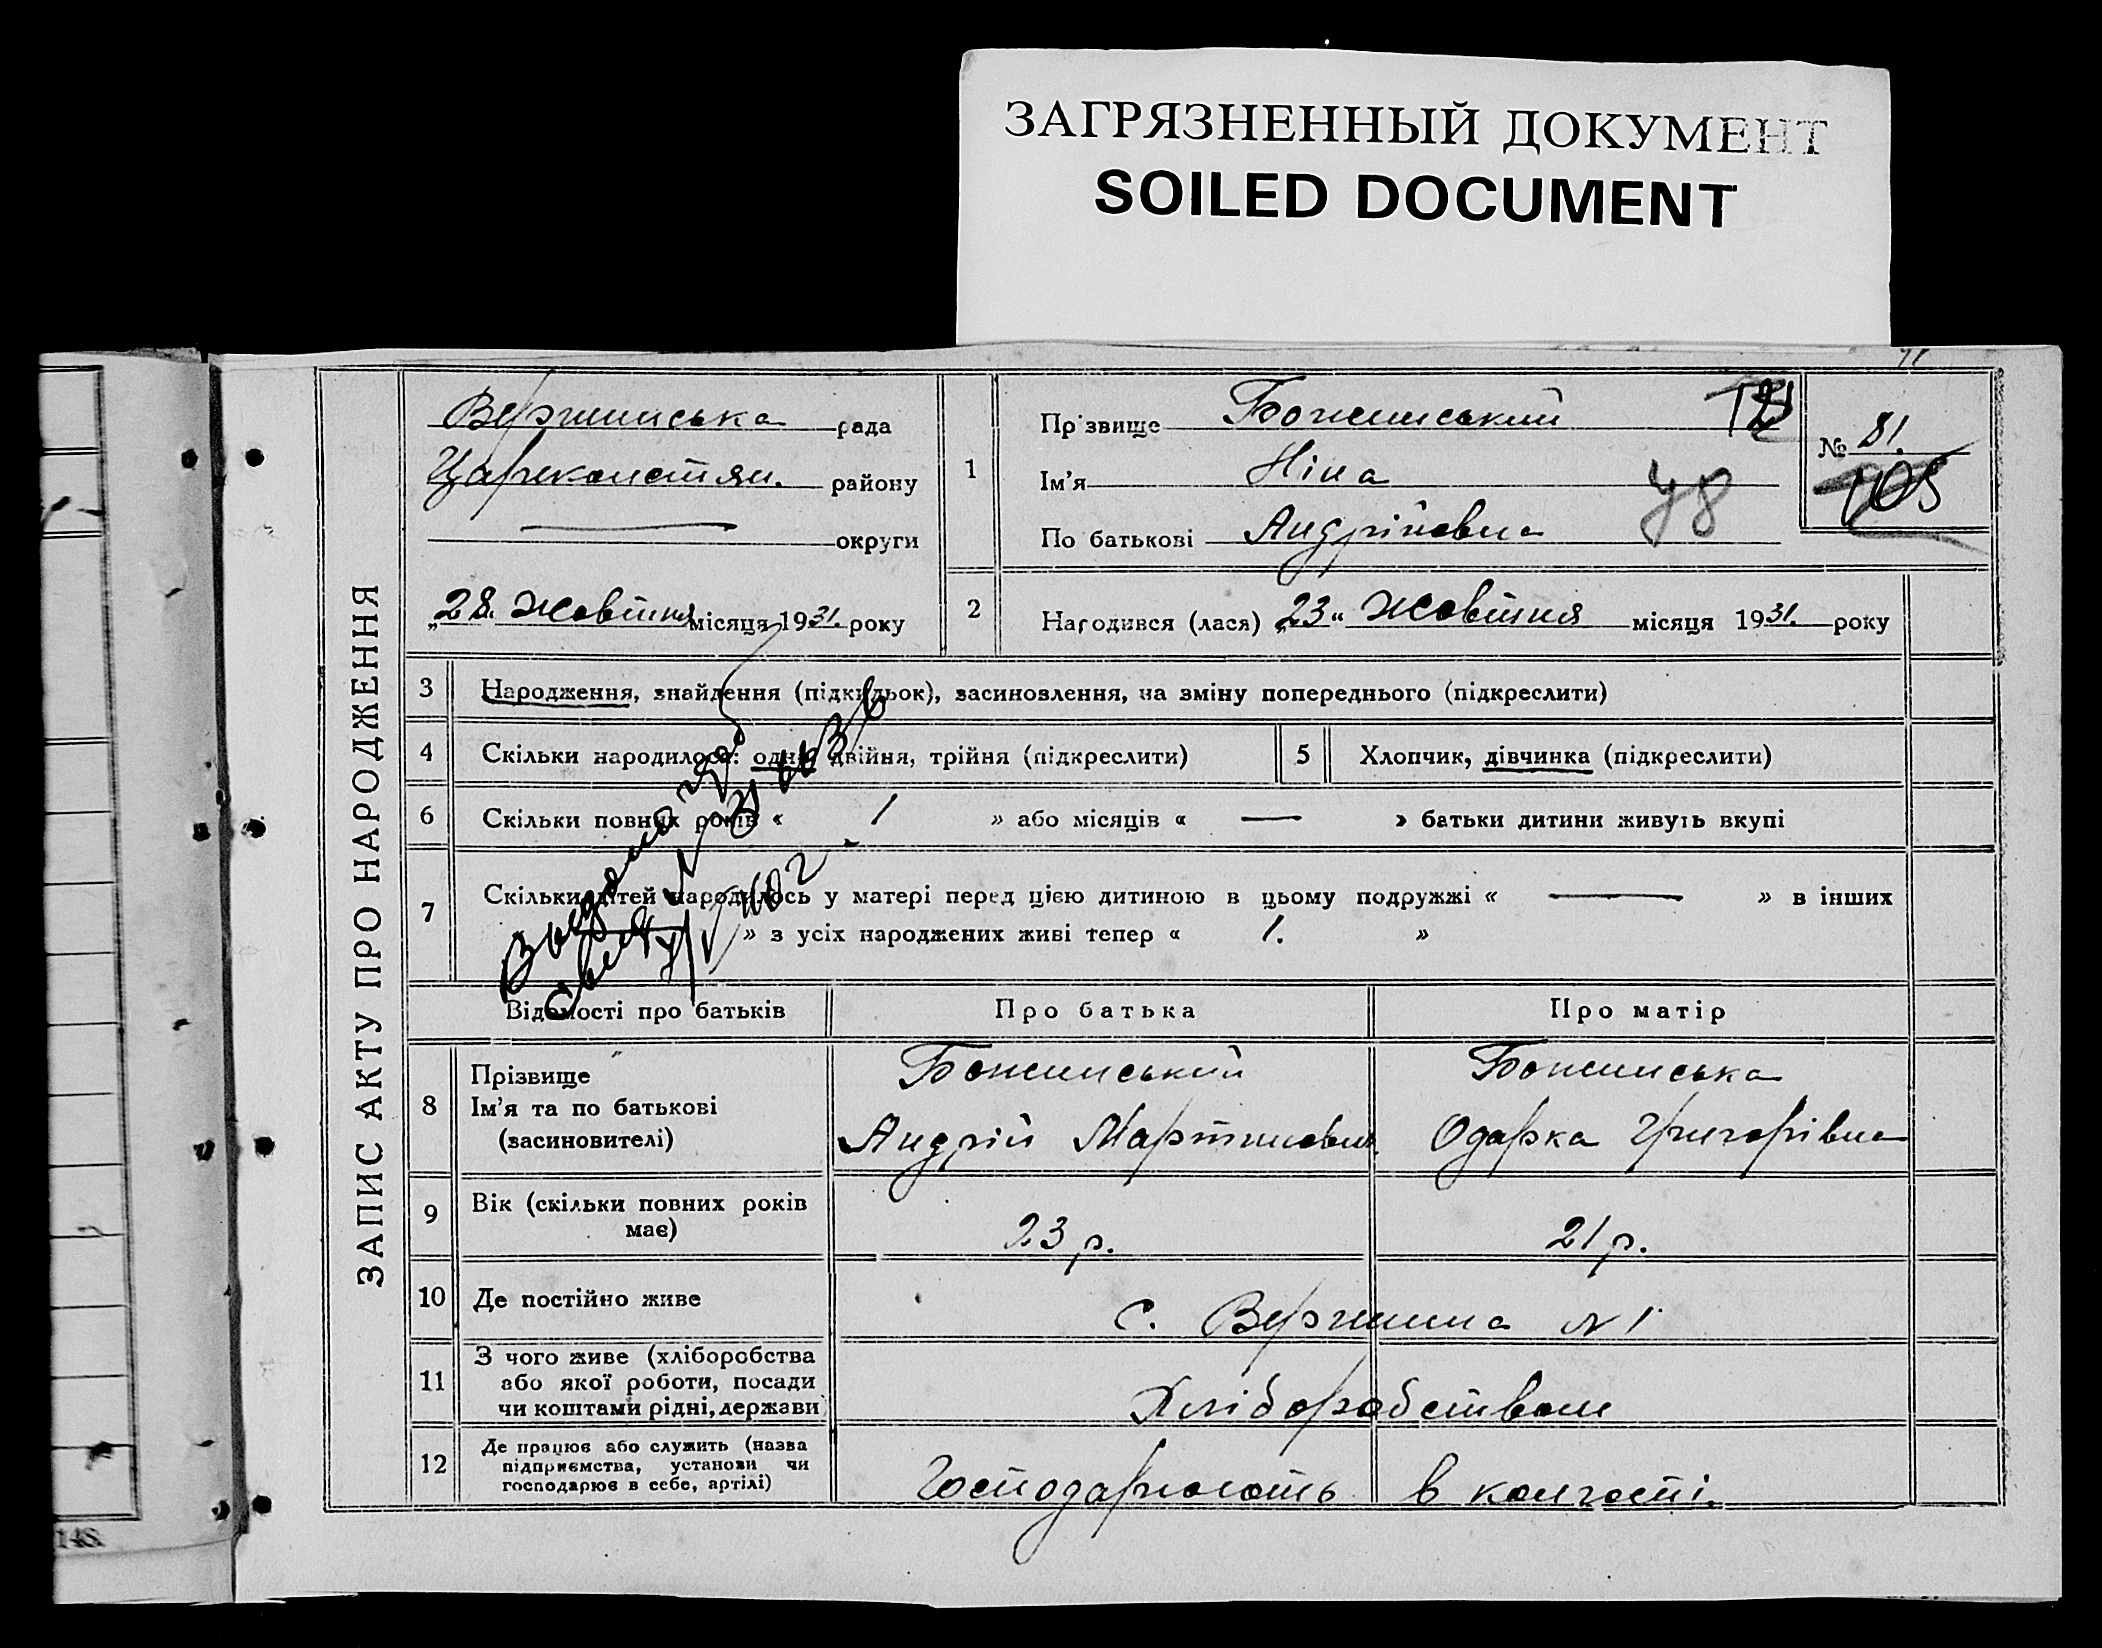 ЗАГРЯЗНЕННЫЙ ДОКУМЕНТ
SOILED DOCUMENT
ЗАПИС АКТУ ПРО НАРОДЖЕННЯ
Вержинська рада
Царекостян. району
— округи
„28. Жовтня місяця 1931. року
1
Прізвище Божинський
Ім'я Ніна
По батькові Андрійовна
48
№ 81.
105
2
Народився (лася) „23“ Жовтня місяця 1931. року
3 Народження, знайдення (підкидьок), засиновлення, на зміну попереднього (підкреслити)
4 Скільки народилося: одна, двійня, трійня (підкреслити)
5 Хлопчик, дівчинка (підкреслити)
6 Скільки повних років « 1 » або місяців « — » батьки дитини живуть вкупі
7 Скільки дітей народилось у матері перед цією дитиною в цьому подружжі « — » в інших
» з усіх народжених живі тепер « 1. »
Відомості про батьків Про батька Про матір
8 Прізвище
Ім'я та по батькові
(засиновителі)
Божинський
Андрій Мартинович
Божинська
Одарка Григорівна
9 Вік (скільки повних років
має)
23 р. 21 р.
10 Де постійно живе
с. Вержина N 1
11 З чого живе (хліборобства
або якої роботи, посади
чи коштами рідні, держави)
Хліборобством
12 Де працює або служить (назва
підприємства, установи чи
господарює в себе, артілі)
Господарюють в колгості.
148